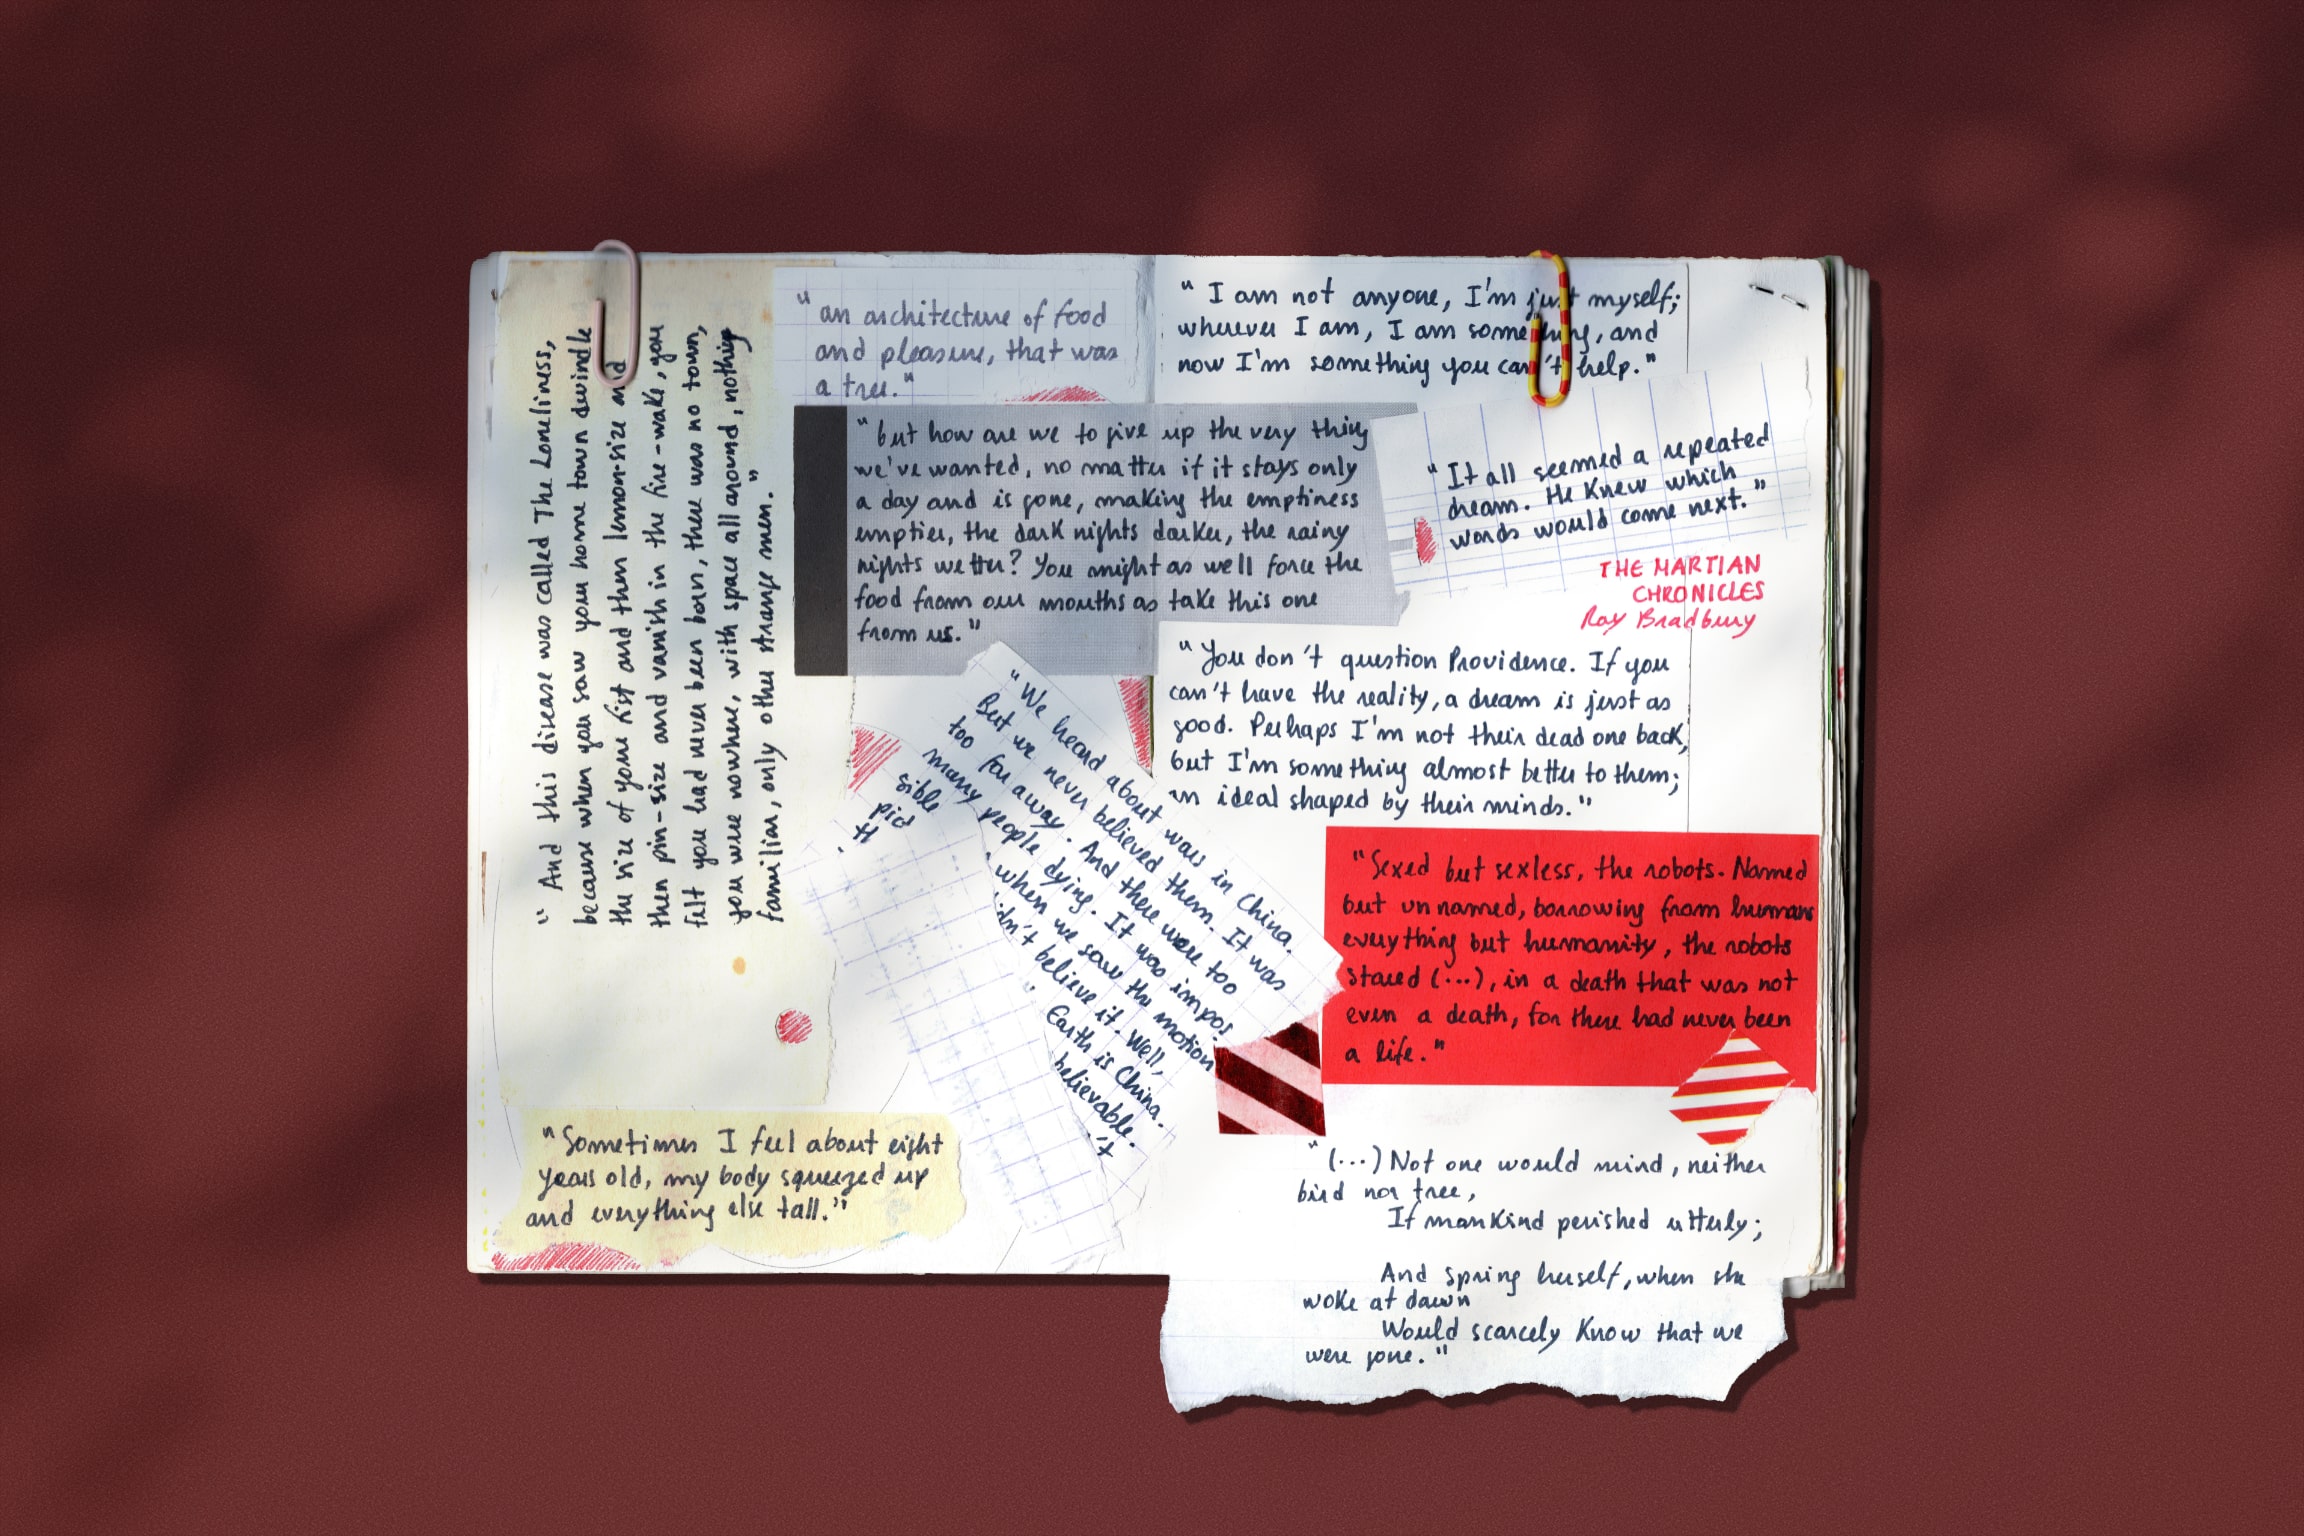 "And this disease was called The Loneliness,
because when you saw your home town dwindle
the size of your fist and then lemon-size and
then pin-size and vanish in the fire-wake, you
felt you had never been born, there was no town,
you were nowhere, with space all around, nothing
familiar, only other strange men."
"Sometimes I feel about eight
years old, my body squeezed up
and everything else tall."
"an architecture of food
and pleasure, that was
a tree."
"but how are we to give up the very thing
we've wanted, no matter if it stays only
a day and is gone, making the emptiness
emptier, the dark nights darker, the rainy
nights wetter? You might as well force the
food from our mouths as take this one
from us."
"We heard about wars in China.
But we never believed them. It was
too far away. And there were too
many people dying. It was impos
sible when we saw the motion
pic idn't believe it. Well,
th " Earth is China.
believable.
't
"I am not anyone, I'm just myself;
wherever I am, I am something, and
now I'm something you can't help."
"It all seemed a repeated
dream. He knew which
words would come next."
THE MARTIAN
CHRONICLES
Ray Bradbury
"You don't question Providence. If you
can't have the reality, a dream is just as
good. Perhaps I'm not their dead one back,
but I'm something almost better to them;
an ideal shaped by their minds."
"Sexed but sexless, the robots. Named
but unnamed, borrowing from humans
everything but humanity, the robots
stared (...), in a death that was not
even a death, for there had never been
a life."
"(...) Not one would mind, neither
bird nor tree,
If mankind perished utterly;
And spring herself, when she
woke at dawn
Would scarcely know that we
were gone."